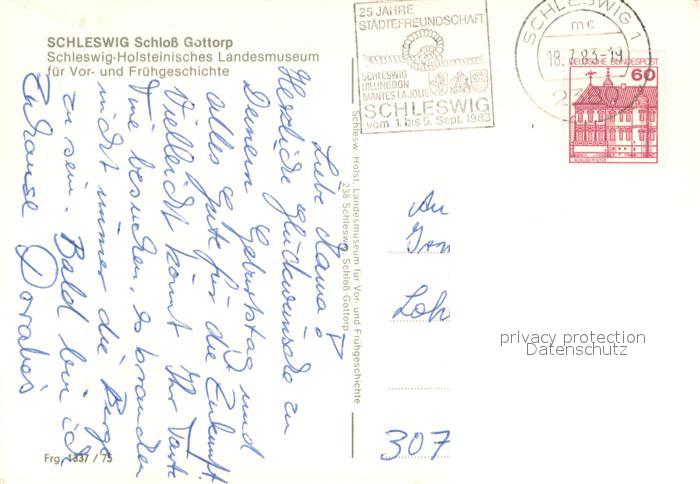 SCHLESWIG Schloß Gottorp
Schleswig-Holsteinisches Landesmuseum
für Vor- und Frühgeschichte
25 JAHRE
STÄDTEFREUNDSCHAFT
SCHLESWIG
HILLINGDON
MANTES LA JOLIE
SCHLESWIG
vom 1. bis 5. Sept. 1983
SCHLESWIG 1
mc
18.7.83-19
2380
DEUTSCHE BUNDESPOST
60
Liebe
Herzliche Glückwünsche zu
Deinem Geburtstag und
alles Gute für die Zukunft.
Vielleicht könnt Ihr Tante
besuchen, es brauchen
nicht immer die Berge
zu sein. Bald bin ich
Zuhause
Schlesw. Holst. Landesmuseum für Vor- und Frühgeschichte
238 Schleswig, Schloß Gottorp
An
Loh
307
privacy protection
Datenschutz
Frg. 1337 / 75